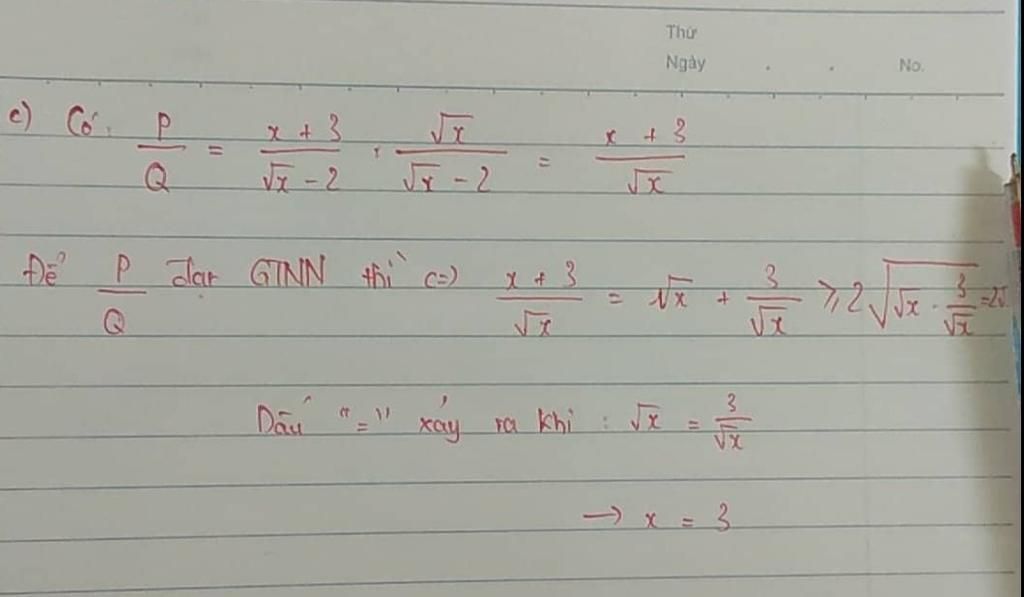 Thứ
Ngày . . No.
c) Có: P/Q = (x + 3)/(√x - 2) . √x/(√x - 2) = (x + 3)/√x
Để P/Q đạt GTNN thì (=) (x + 3)/√x = √x + 3/√x ≥ 2√(√x . 3/√x) = 2√
Dấu "=" xảy ra khi : √x = 3/√x
→ x = 3